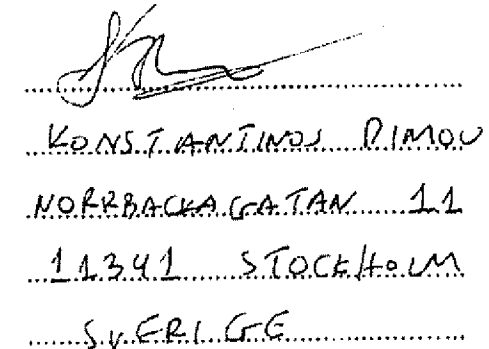 KONSTANTINOS DIMOU
NORRBACKAGATAN 11
11341 STOCKHOLM
SVERIGE